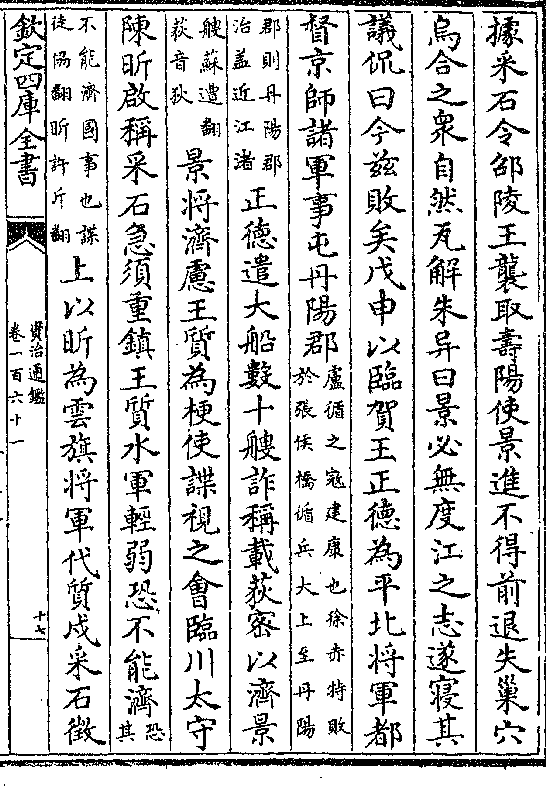 據采石令邵陵王襲取壽陽使景進不得前退失巢穴
烏合之衆自然瓦解朱异曰景必無度江之志遂寝其
議侃曰今兹敗矣戊申以臨賀王正德為平北將軍都
督京師諸軍事屯丹陽郡盧循之寇建康也徐赤特敗
於張侯橋循兵大上至丹陽
郡則丹陽郡
治盖近江渚
正德遣大船數十艘詐稱載荻宻以濟景
艘蘇遭翻
荻音狄
景將濟慮王質為梗使諜視之會臨川太守
陳昕啟稱采石急須重鎮王質水軍輕弱恐不能濟恐
其
不能濟國事也諜
徒協翻昕許斤翻
上以昕為雲旗將軍代質戍采石徵
欽定四庫全書
資治通鑑
卷一百六十一
十七